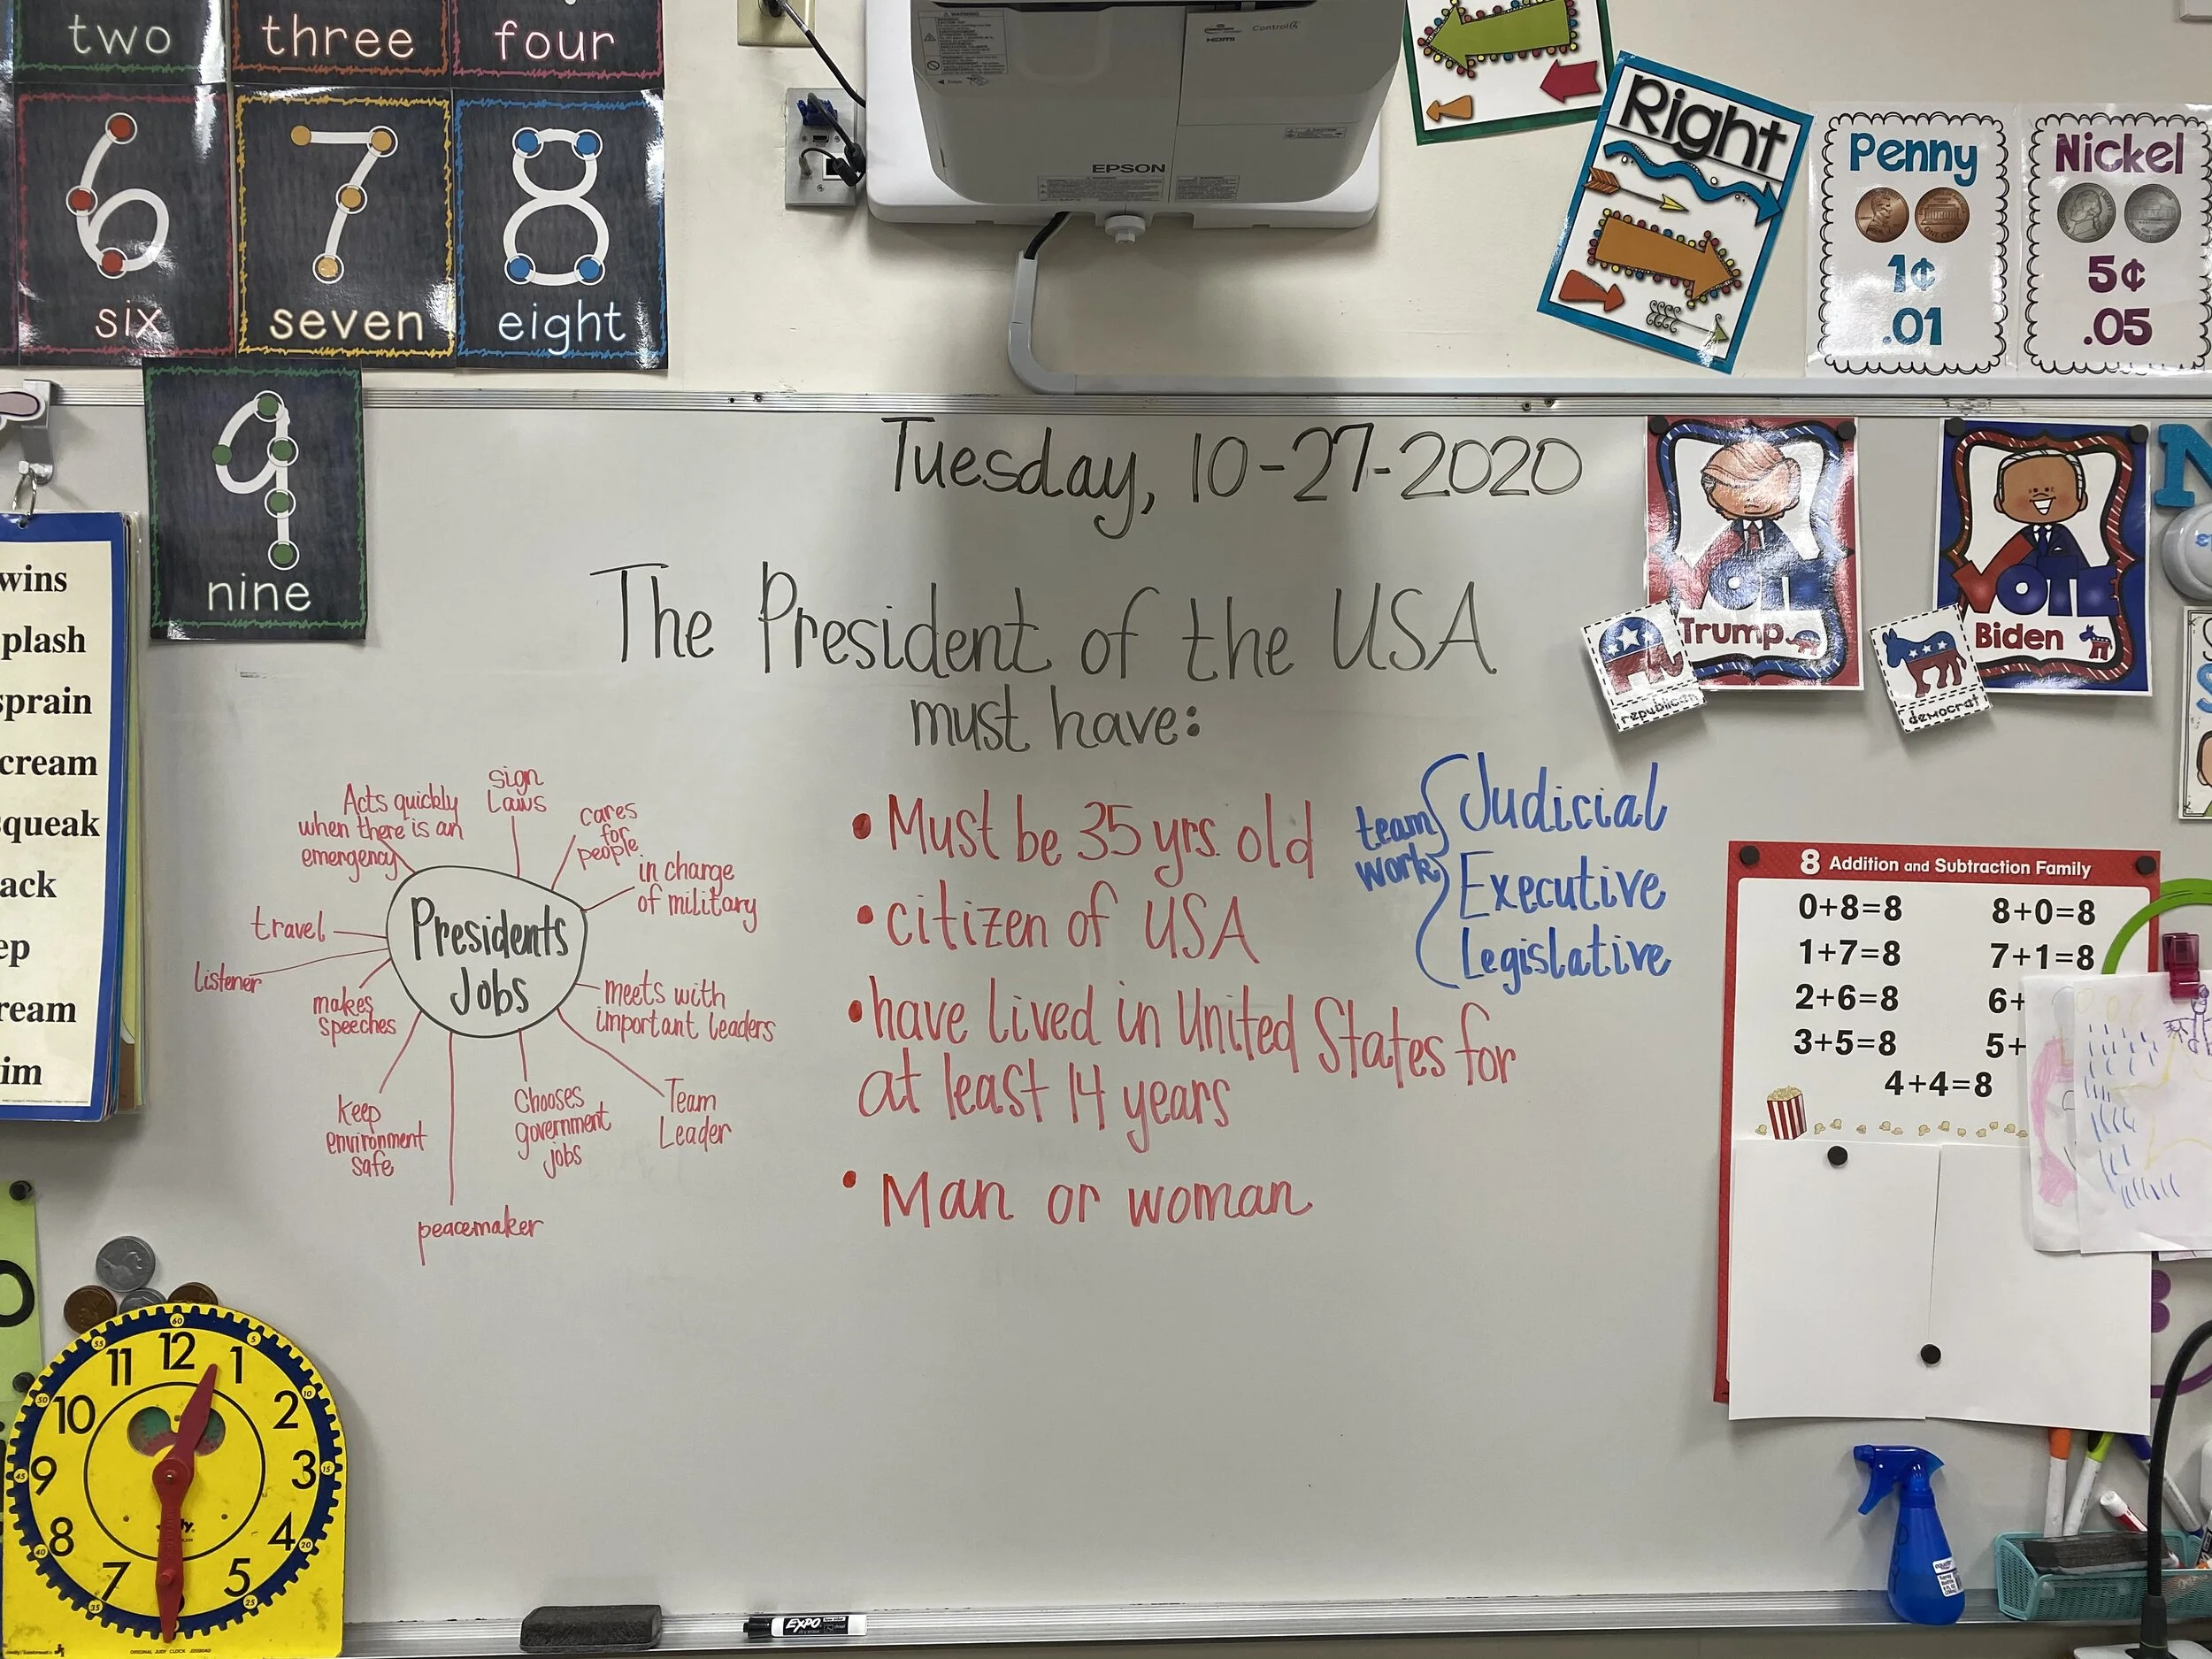 two
three
four
six
seven
8
eight
6
7
9
nine
EPSON
Control4
HDMI
Right
Penny
1¢
.01
Nickel
5¢
.05
Tuesday, 10-27-2020
The President of the USA
must have:
VOTE
Trump
republican
VOTE
Biden
democrat
wins
plash
sprain
cream
squeak
ack
ep
ream
im
Presidents
Jobs
Acts quickly
when there is an
emergency
sign
Laws
cares
for
people
in charge
of military
meets with
important leaders
Team
Leader
Chooses
government
jobs
peacemaker
keep
environment
safe
makes
speeches
Listener
travel
• Must be 35 yrs. old
• citizen of USA
• have lived in United States for
at least 14 years
• Man or woman
team
work
Judicial
Executive
Legislative
8 Addition and Subtraction Family
0+8=8
8+0=8
1+7=8
7+1=8
2+6=8
6+
3+5=8
5+
4+4=8
12
1
2
3
4
5
7
8
9
10
11
60
5
10
15
20
25
35
40
45
50
55
ORIGINAL JUDY CLOCK
EXPO